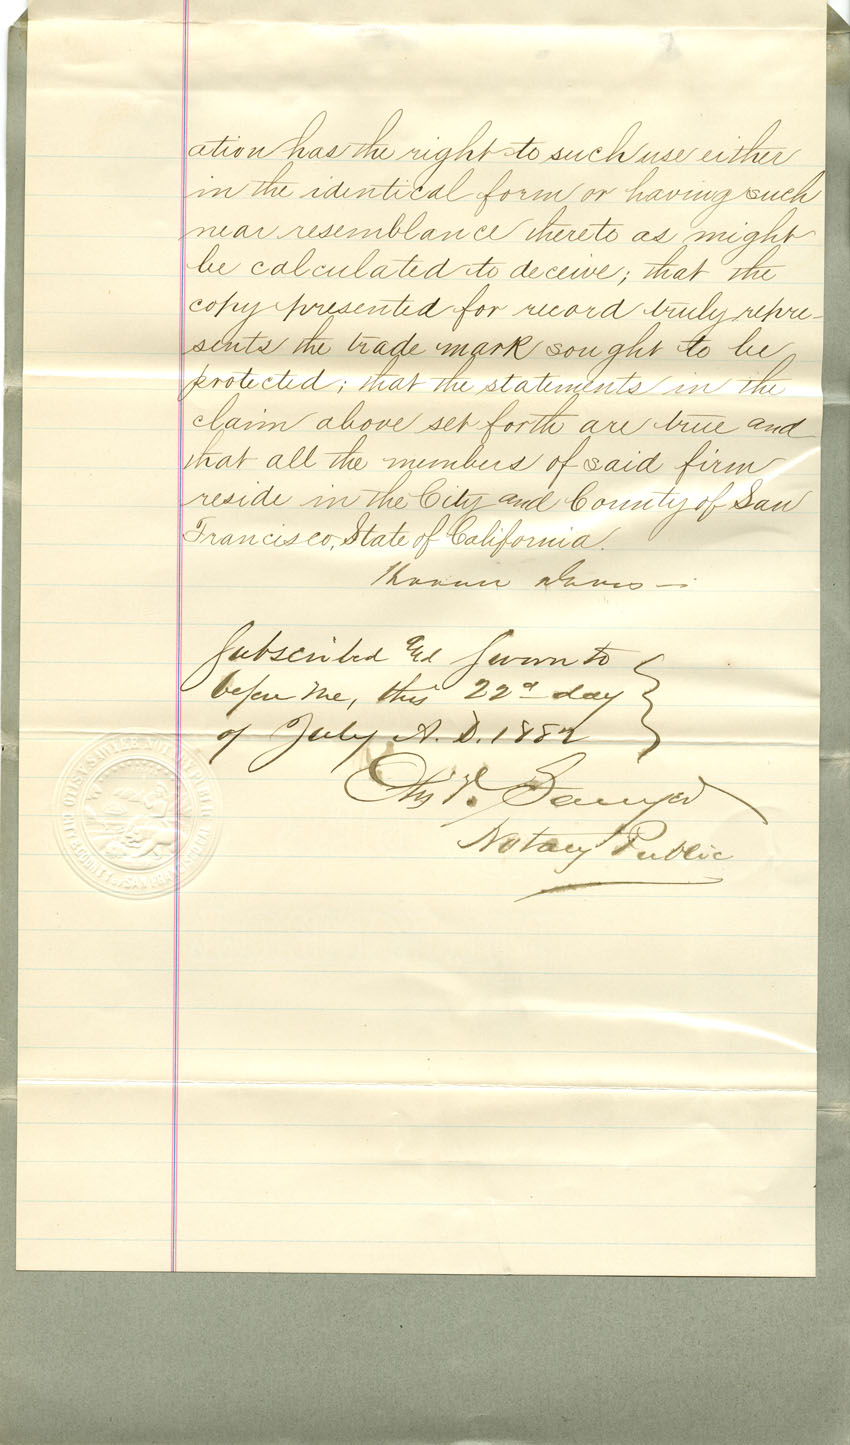 ation has the right to such use either
in the identical form or having such
near resemblance thereto as might
be calculated to deceive; that the
copy presented for record truly repre-
sents the trade mark sought to be
protected; that the statements in the
claim above set forth are true and
that all the members of said firm
reside in the City and County of San
Francisco, State of California.
Subscribed and Sworn to
before me, this 22d day
of July A.D. 1882
Otis V. Sawyer
Notary Public
OTIS V. SAWYER NOTARY PUBLIC
CITY & COUNTY OF SAN FRANCISCO